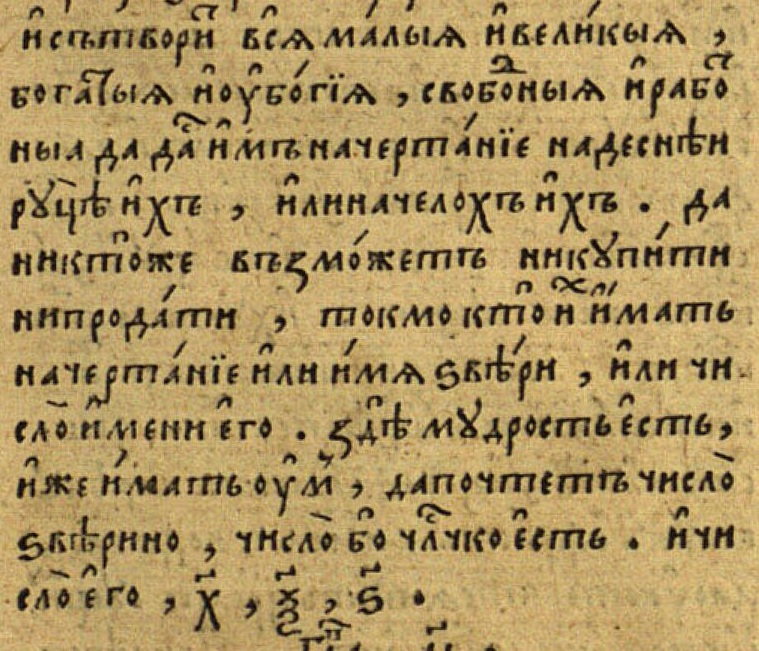 и҆сътвори́ всѧ̀ ма́лыѧ и҆вели́кыѧ ,
бога́тыѧ и҆оу҆бо́гїѧ , свобо́дныѧ и҆рабо́
ныѧ да да́стъ и҆́мъ начерта́нїе надеснѣи
рꙋцѣ̀ и҆́хъ , и҆линачелохъ и҆́хъ . да
никто́же възмо́жетъ никꙋпи́ти
нипрода́ти , токмо кто̀ и҆́мать
начерта́нїе и҆ли и҆́мѧ ѕвѣ́ри , и҆ли чи
сло̀ и҆́мени є҆го . здѣ̀ мꙋдрость є҆сть ,
и҆́же и҆́мать оу҆́мъ , дапочтетъ число̀
ѕвѣ́рино , число̀ бо чл҃чко є҆сть . и҆чи
сло̀ є҆го , х҃ , ѯ҃ , ѕ҃ .